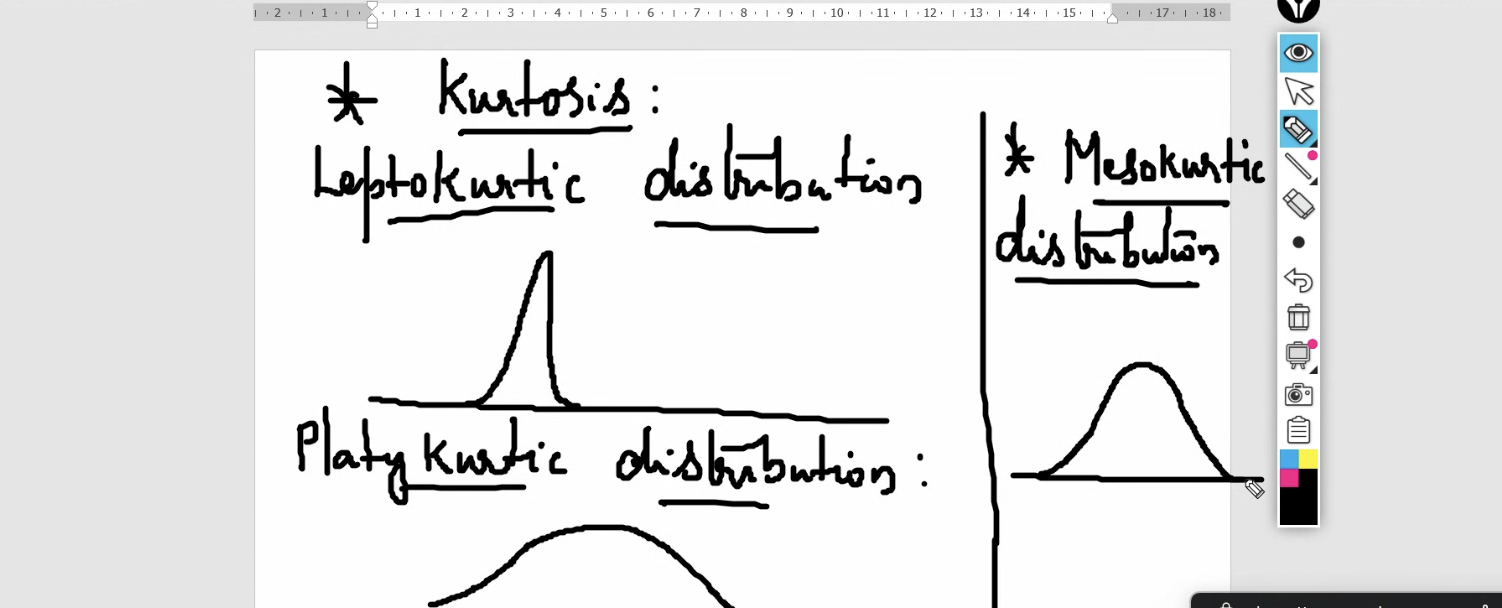 2 1 1 2 3 4 5 6 7 8 9 10 11 12 13 14 15 17 18
* Kurtosis :
Leptokurtic distribution
Platykurtic distribution :
* Mesokurtic
distribution